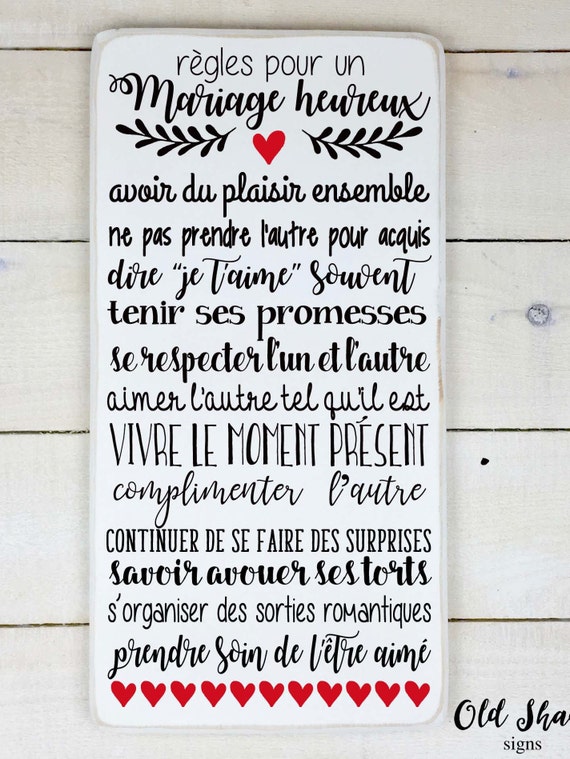 règles pour un
Mariage heureux
avoir du plaisir ensemble
ne pas prendre l'autre pour acquis
dire "je t'aime" souvent
tenir ses promesses
se respecter l'un et l'autre
aimer l'autre tel qu'il est
VIVRE LE MOMENT PRÉSENT
complimenter l'autre
CONTINUER DE SE FAIRE DES SURPRISES
savoir avouer ses torts
s'organiser des sorties romantiques
prendre soin de l'être aimé
Old Sha
signs